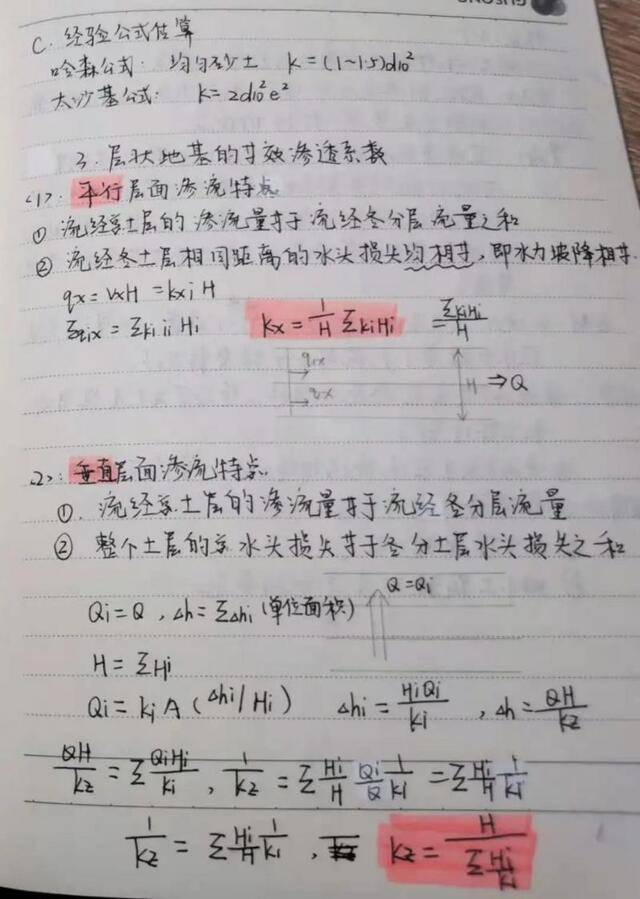 C. 经验公式估算
哈森公式: 均匀砂土 k=(1~1.5)d10²
太沙基公式: k=2d10²e²
3. 层状地基的等效渗透系数
<1>: 平行层面渗流特点
① 流经总土层的渗流量等于流经各分层流量之和
② 流经各土层相同距离的水头损失均相等,即水力坡降相等.
qx=VxH=kxiH
Σqix=ΣkiiiHi kx=1/H ΣkiHi =ΣkiHi/H
q1x
q2x H ⇒Q
<2>: 垂直层面渗流特点
①. 流经总土层的渗流量等于流经各分层流量
② 整个土层的总水头损失等于各分土层水头损失之和
Q=Qi
Qi=Q, Δh=ΣΔhi(单位面积)
H=ΣHi
Qi=kiA(Δhi/Hi) Δhi=HiQi/ki , Δh=QH/kz
QH/kz=ΣQiHi/ki , 1/kz=Σ Hi/H Qi/Q 1/ki =Σ Hi/H 1/ki
1/kz=Σ Hi/H 1/ki , kz=H/(Σ Hi/ki)